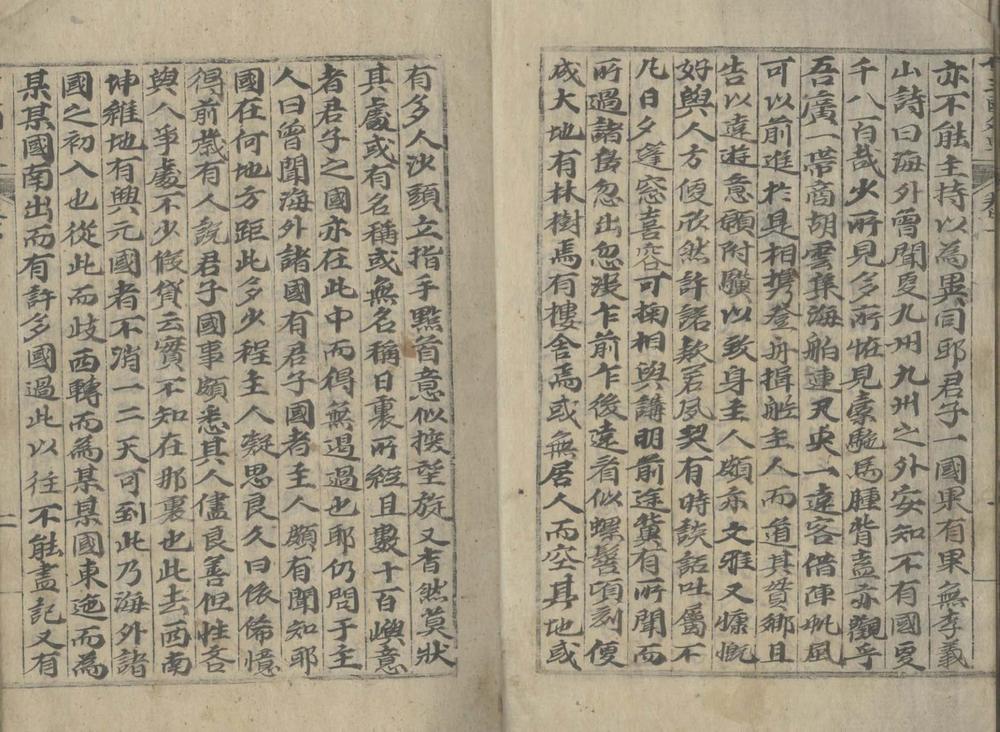 亦不能主持以為異同耶君子一國果有果無李義
山詩曰海外曾聞更九州九州之外安知不有國更
千八百哉少所見多所恠見橐駞馬腫背盍亦觀乎
吾廣一帶商胡雲集海舶連天央一遠客借陣帆風
可以前進於是相携登舟揖舡主人而道其贄鄉且
告以遠遊意願附驥以致身主人頗亦文雅又慷慨
好與人方便欣然許諾款若夙契有時談話吐屬不
凡日夕篷窓喜容可掬相與講明前途冀有所聞而
所過諸島忽出忽沒乍前乍後遠看似螺髻頃刻便
成大地有林樹焉有樓舍焉或無居人而空其地或
有多人沙頭立指手點首意似接望旋又杳然莫狀
其處或有名稱或無名稱日裏所經且數十百嶼意
者君子之國亦在此中而得無遏過也耶仍問于主
人曰曾聞海外諸國有君子國者主人頗有聞知耶
國在何地方距此多少程主人凝思良久曰依俙憶
得前歲有人說君子國事頗悉其人儘良善但性吝
與人爭處不少假貸云實不知在那裏也此去西南
坤維地有興元國者不消一二天可到此乃海外諸
國之初入也從此而歧西轉而為某某國東迤而為
某某國南出而有許多國過此以往不能盡記又有